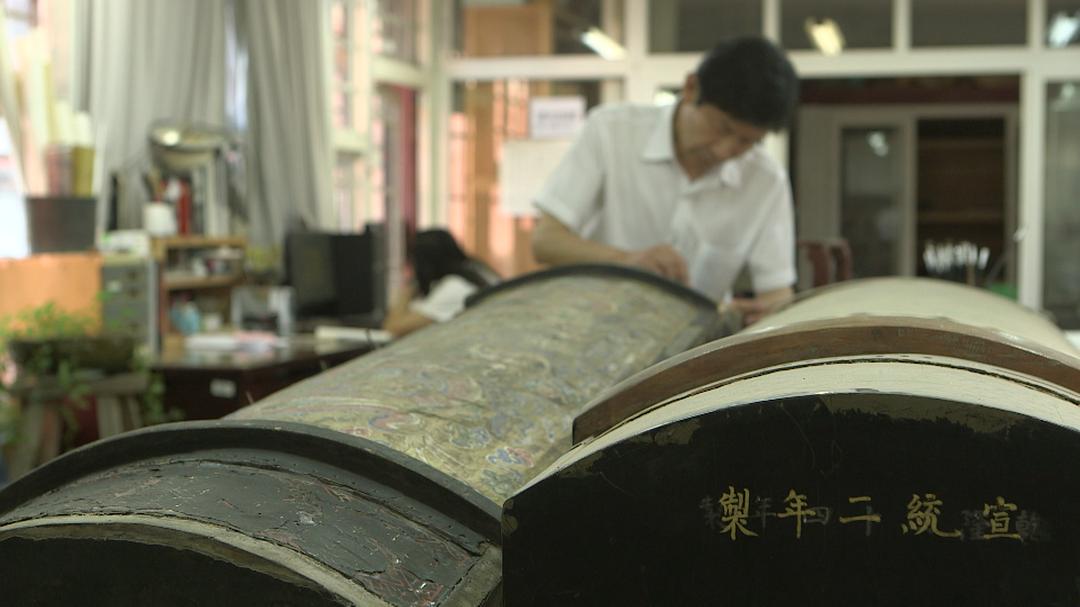 宣統二年製